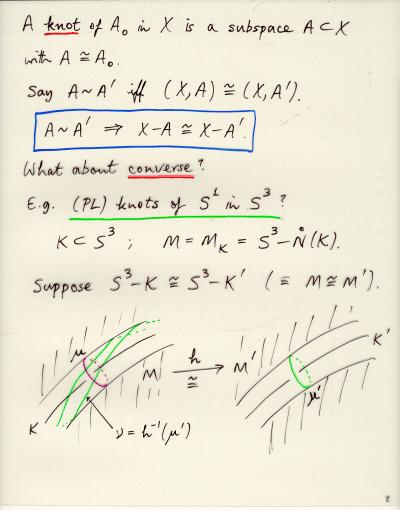 A knot of A₀ in X is a subspace A ⊂ X
with A ≅ A₀.
Say A ~ A' iff (X, A) ≅ (X, A').
A ~ A' ⇒ X - A ≅ X - A'.
What about converse?
E.g. (PL) knots of S¹ in S³?
K ⊂ S³ ; M = M_K = S³ - N̊(K).
Suppose S³ - K ≅ S³ - K' (≡ M ≅ M').
μ
M
h
≅
M'
K'
μ'
K
ν = h⁻¹(μ')
2